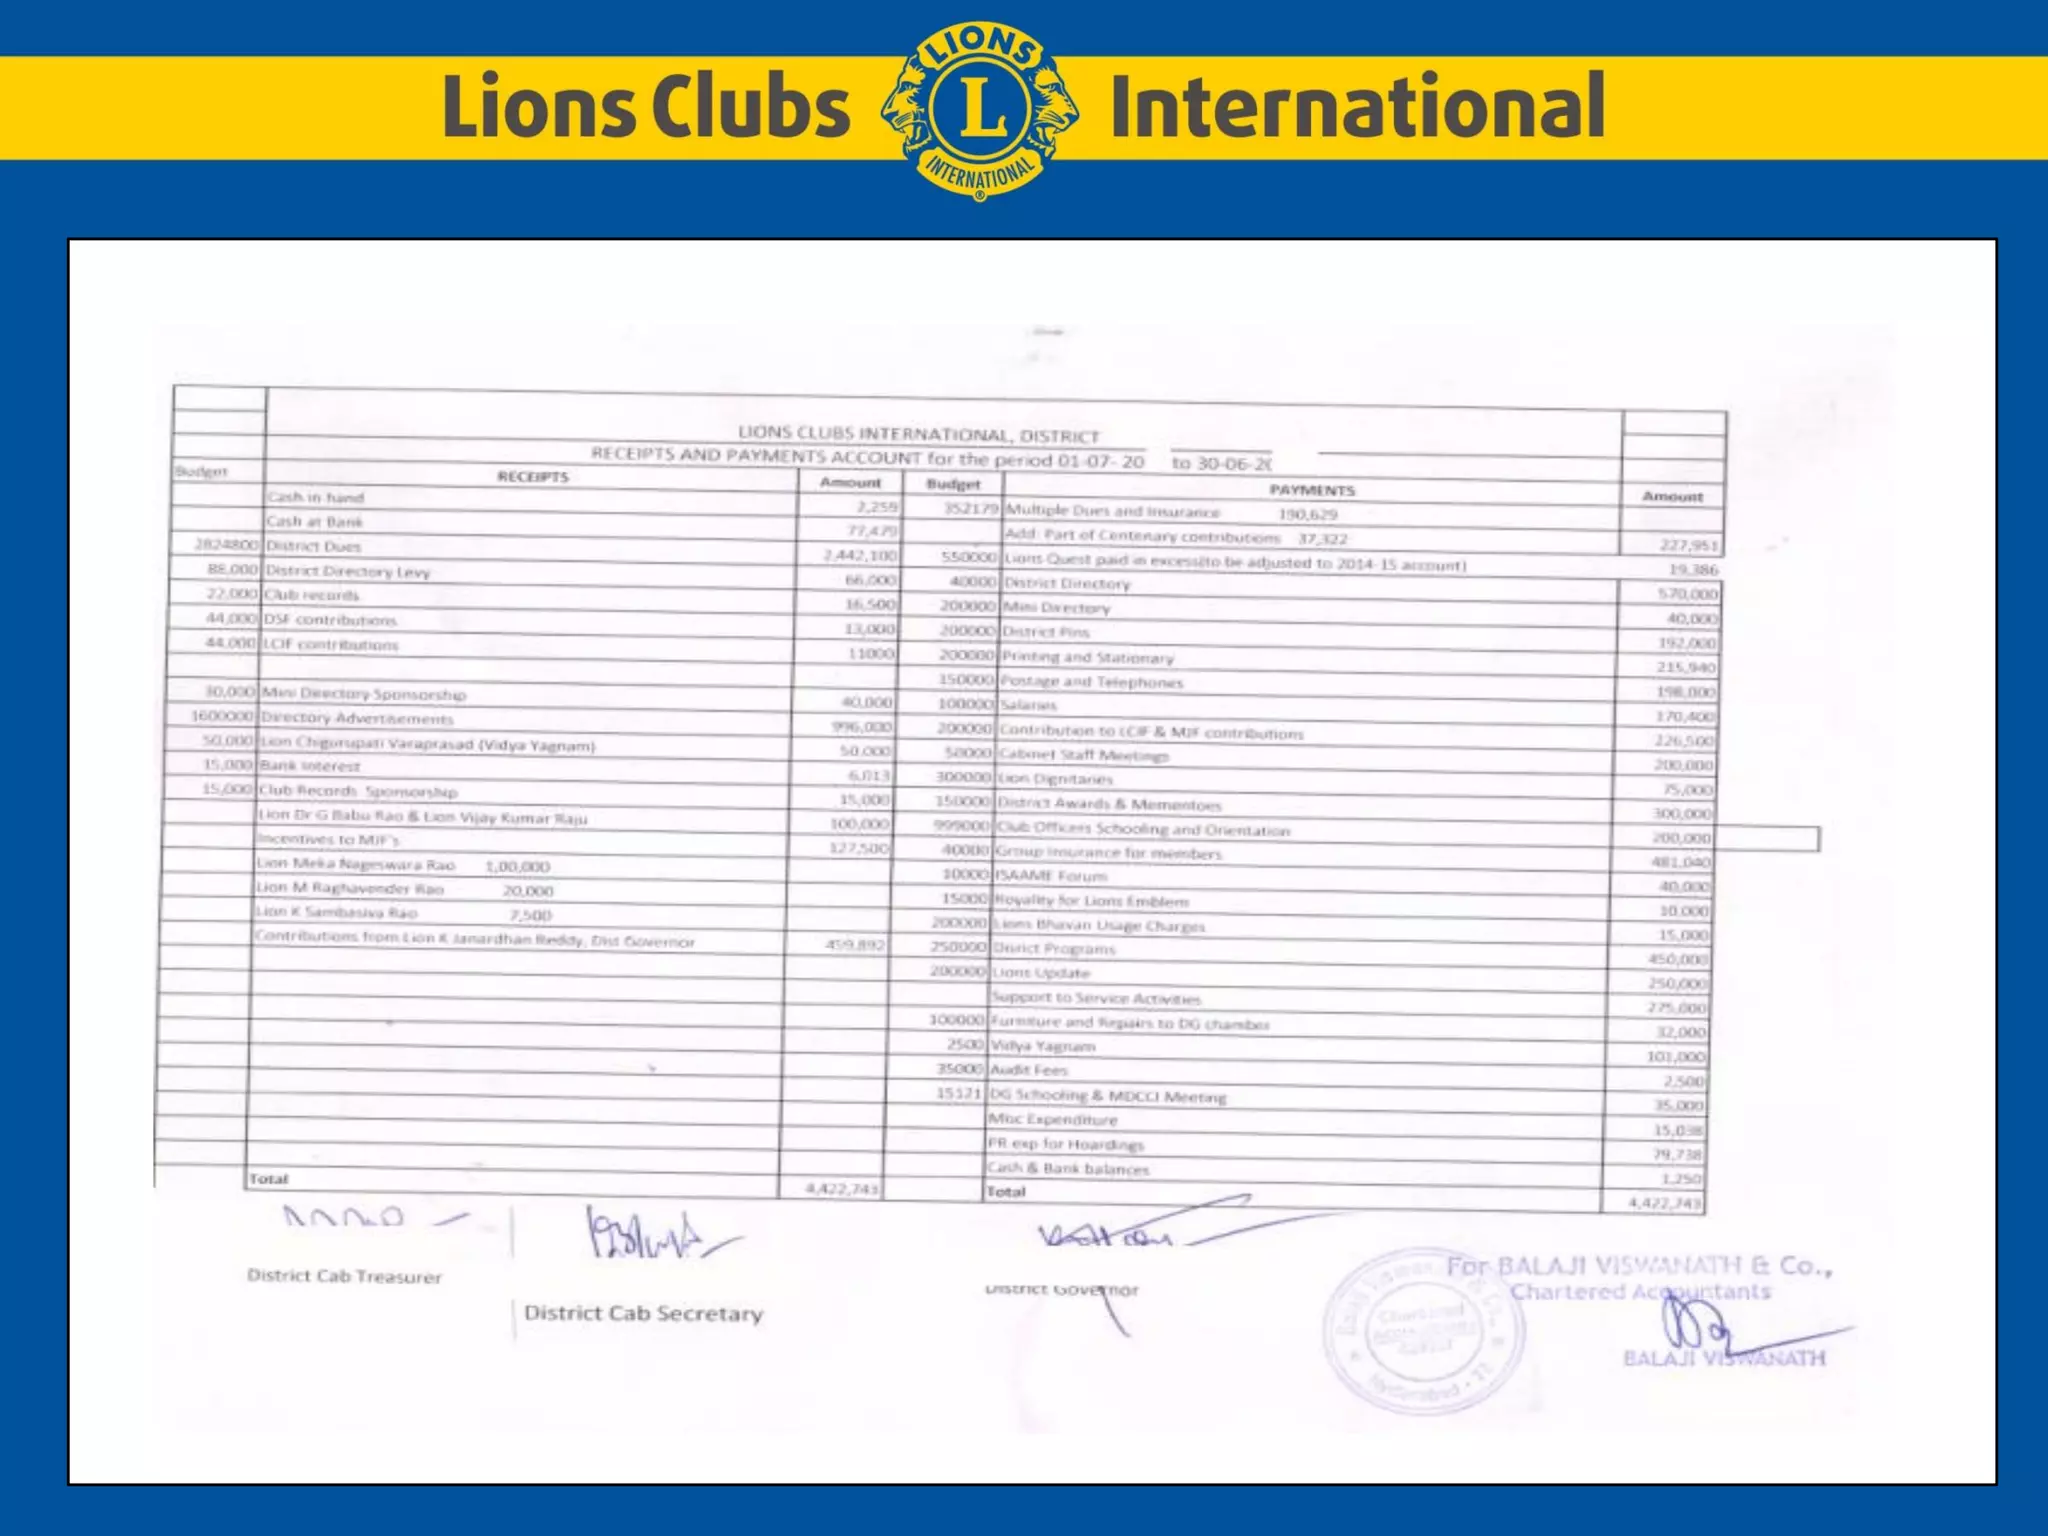 Lions Clubs International
LIONS INTERNATIONAL
L
®
LIONS CLUBS INTERNATIONAL, DISTRICT
RECEIPTS AND PAYMENTS ACCOUNT for the period 01-07- 20 to 30-06-20
Budget RECEIPTS Amount Budget PAYMENTS Amount
Cash in hand 2,259 352179 Multiple Dues and Insurance 190,629
Cash at Bank 77,479 Add: Part of Centenary contributions 37,322 227,951
2824800 District Dues 2,442,100 550000 Lions Quest paid in excess(to be adjusted to 2014-15 account) 19,386
88,000 District Directory Levy 66,000 40000 District Directory 570,000
22,000 Club records 16,500 200000 Mini Directory 40,000
44,000 DSF contributions 13,000 200000 District Pins 192,000
44,000 LCIF contributions 11000 200000 Printing and Stationary 215,940
150000 Postage and Telephones 198,000
30,000 Mini Directory Sponsorship 40,000 100000 Salaries 170,400
1600000 Directory Advertisements 996,000 200000 Contribution to LCIF & MJF contributions 226,500
50,000 Lion Chigurupati Varaprasad (Vidya Yagnam) 50,000 50000 Cabinet Staff Meetings 200,000
15,000 Bank Interest 6,013 300000 Lion Dignitaries 75,000
15,000 Club Records Sponsorship 15,000 150000 District Awards & Mementoes 300,000
Lion Dr G Babu Rao & Lion Vijay Kumar Raju 100,000 999000 Club Officers Schooling and Orientation 200,000
Incentives to MJF's 127,500 40000 Group Insurance for members 481,040
Lion Meka Nageswara Rao 1,00,000 10000 ISAAME Forum 40,000
Lion M Raghavender Rao 20,000 15000 Royality for Lions Emblem 10,000
Lion K Sambasiva Rao 7,500 200000 Lions Bhavan Usage Charges 15,000
Contributions from Lion K Janardhan Reddy, Dist Governor 459,892 250000 District Programs 450,000
200000 Lions Update 250,000
Support to Service Activities 275,000
100000 Furniture and Repairs to DG chamber 32,000
2500 Vidya Yagnam 101,000
35000 Audit Fees 2,500
15171 DG Schooling & MDCCI Meeting 35,000
Misc Expenditure 15,038
PR exp for Hoardings 79,738
Cash & Bank balances 1,250
Total 4,422,743 Total 4,422,743
District Cab Treasurer
District Cab Secretary
District Governor
For BALAJI VISWANATH & Co.,
Chartered Accountants
BALAJI VISWANATH
Chartered
Hyderabad